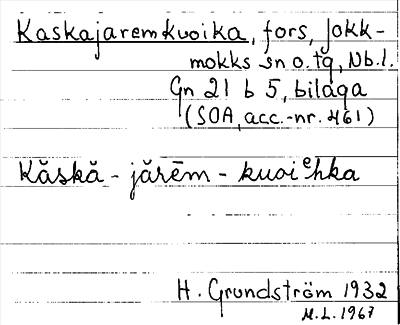 Kaskajaremkuoika, fors, Jokk-
mokks sn o. tg, Nb.l.
Gn 21 b 5, bilaga
(SOA, acc.-nr. 461)
Kăskă - jărēm - kuoiᵉhka
H. Grundström 1932
M.L. 1967